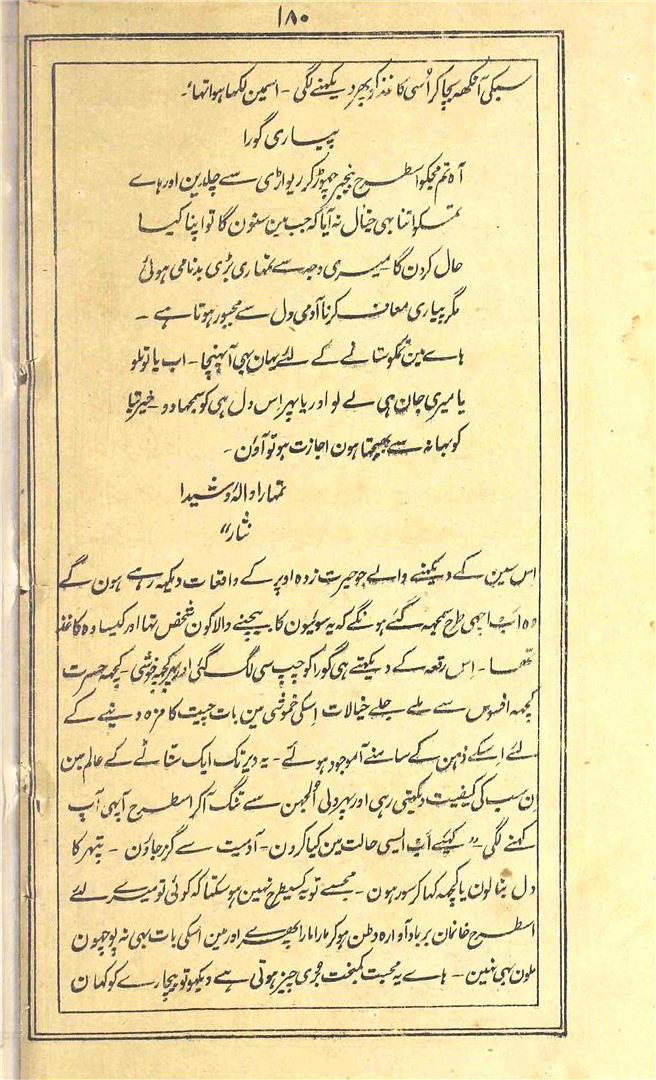 ۱۸۰
سبکی آنکھہ بچا کر اُسی کاغذ کو پھر دیکھنے لگی - اسمین لکھا ہوا تھا
پیاری گورا
آہ تم مجکو اسطرح بیخبر چھوڑ کر ریواڑی سے چلدین اور ہاے
تمکو اتنا بہی خیال نہ آیا کہ جب مین سنون گا تو اپنا کیا
حال کردن گا میری وجہ سے تمہاری بڑی بدنامی ہوئی
مگر پیاری معاف کرنا آدمی دل سے مجبور ہوتا ہے -
ہاے مین تمکو ستانے کے لئے یہان بہی آ پہنچا - اب یا تو ملو
یا میری جان ہی لے لو اور یا پہر اس دل ہی کو سمجھا دو - خیر
کو بہانہ سے بھیجتا ہون اجازت ہو تو آؤن -
تمہارا والہ و شیدا
نثار"
اس سین کے دیکھنے والے جو حیرت زدہ اوپر کے واقعات دیکھہ رہے ہون گے
وہ اب اچھی طرح سمجھہ گئے ہونگے کہ یہ سوئیون کا بیچنے والا کون شخص تھا اور کیسا وہ کاغذ
تھا - اِس رقعہ کے دیکھتے ہی گورا کو چپ سی لگ گئی اور پہر کچھہ خوشی - کچھہ حسرت
کچھہ افسوس سے ملے جلے خیالات اسکی خموشی مین بات چیت کا مزہ دینے کے
لئے اسکے ذہن کے سامنے آ موجود ہوئے - یہ دیر تک ایک سناٹے کے عالم مین
اِن سب کی کیفیت دیکھتی رہی اور پہر دلی اُلجہن سے تنگ آ کر اسطرح آپہی آپ
کہنے لگی - "کہئے اَب ایسی حالت مین کیا کرون - آدمیت سے گزر جاؤن - پتہر کا
دل بنا لون یا کچھہ کہا کر سو رہون - مجسے تو یہ کسیطرح نہین ہو سکتا کہ کوئی تو میرے لئے
اسطرح خانمان برباد آوارہ وطن ہو کر مارا مارا پھرے اور مین اسکی بات بہی نہ پوچہون
ملون بہی نہین - ہاے یہ محبت کمبخت بُری چیز ہوتی ہے دیکھو تو بیچارے کو کہان